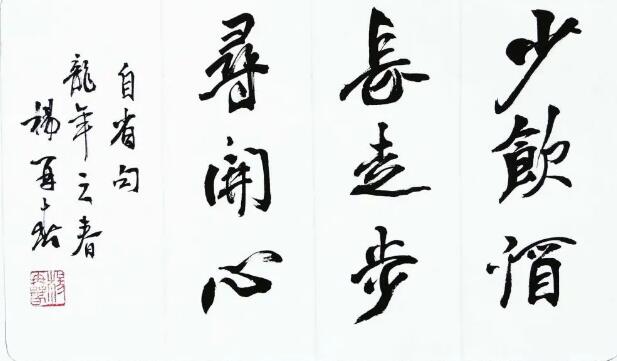 少飲酒
長走步
尋開心
自省句
龍年之春
楊再春
楊再春